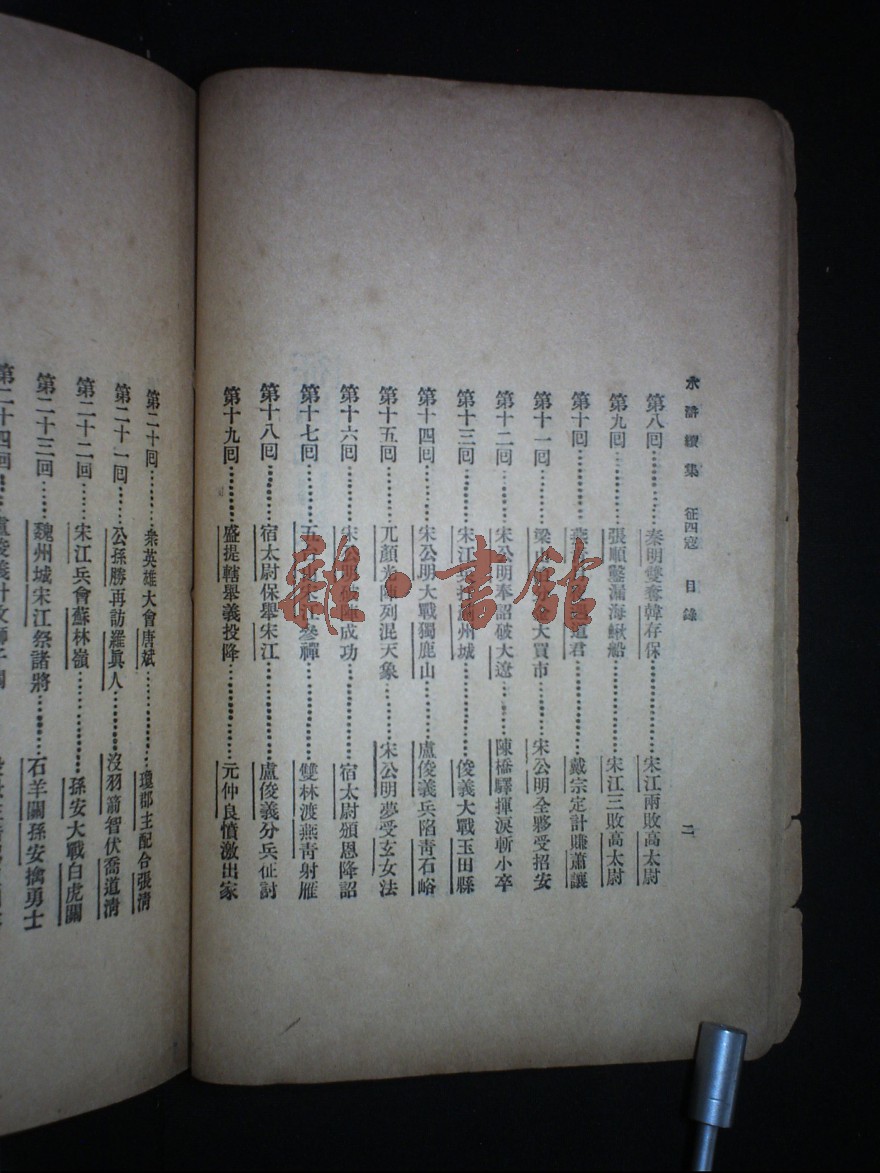 水滸續集 征四寇 目錄 二
第八回………秦明雙奪韓存保………宋江兩敗高太尉
第九回………張順鑿漏海鰍船………宋江三敗高太尉
第十回………燕 道君………戴宗定計賺蕭讓
第十一回………梁山 大買市………宋公明全夥受招安
第十二回………宋公明奉詔破大遼………陳橋驛揮淚斬小卒
第十三回………宋江 州城………俊義大戰玉田縣
第十四回………宋公明大戰獨鹿山………盧俊義兵陷青石峪
第十五回………兀顏光陣列混天象………宋公明夢受玄女法
第十六回………宋公明破陣成功………宿太尉頒恩降詔
第十七回………五 參禪………雙林渡燕青射雁
第十八回………宿太尉保舉宋江………盧俊義分兵征討
第十九回………盛提轄舉義投降………元仲良憤激出家
第二十回………衆英雄大會唐斌………瓊郡主配合張清
第二十一回………公孫勝再訪羅眞人………沒羽箭智伏喬道清
第二十二回………宋江兵會蘇林嶺………孫安大戰白虎關
第二十三回………魏州城宋江祭諸將………石羊關孫安擒勇士
第二十四回………盧俊義計攻獅子關
雜·書館